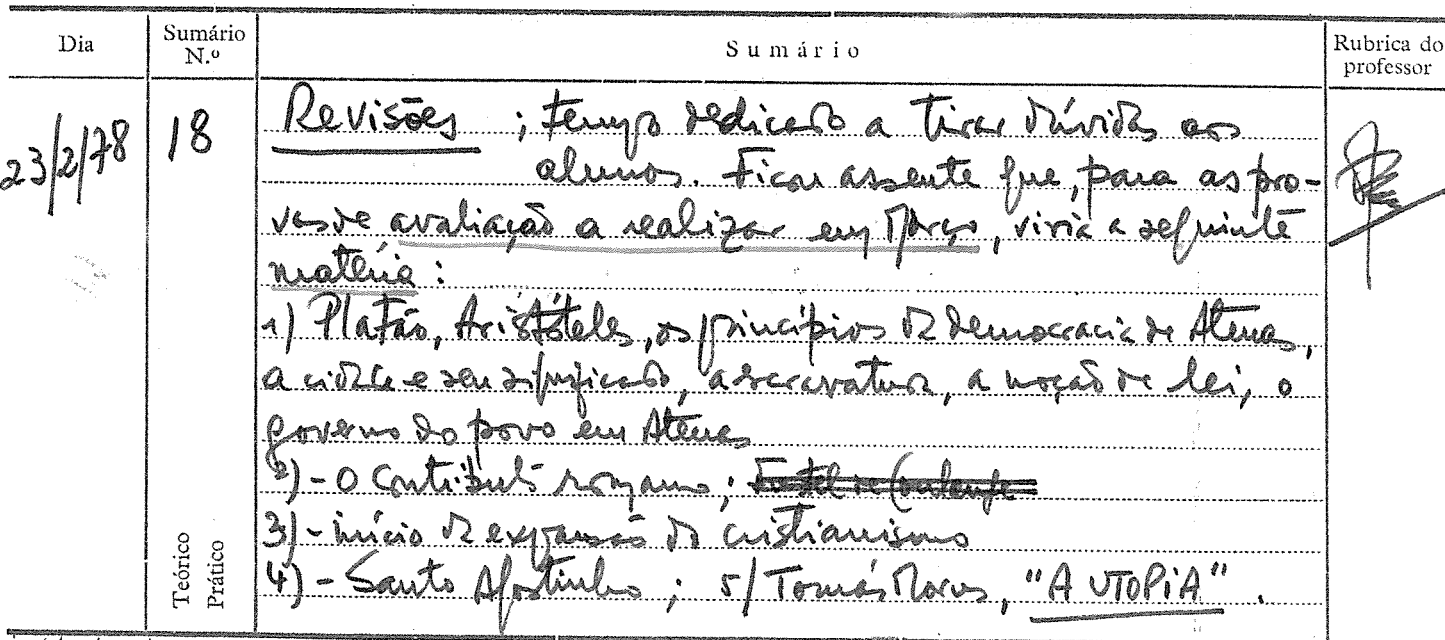 Dia
Sumário N.º
Sumário
Rubrica do professor
23/2/78
18
Revisões ; tempo dedicado a tirar dúvidas aos
alunos. Ficou assente que, para as pro-
vas de avaliação a realizar em Março, viria a seguinte
matéria :
1) Platão, Aristóteles, os princípios da democracia de Atenas,
a cidade e seu significado, a escravatura, a noção de lei, o
governo do povo em Atenas
2) - O contributo romano ; Fustel de Coulanges
3) - início da expansão do cristianismo
4) - Santo Agostinho ; 5/ Tomás Morus, "A UTOPIA" .
Teórico
Prático